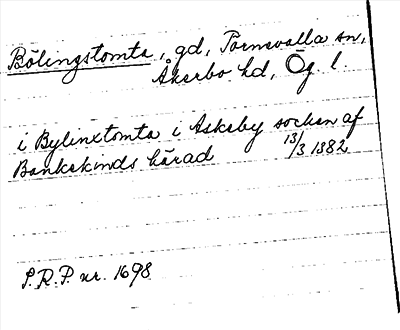 Bölingstomta, gd, Törnevalla sn,
Åkerbo hd, Ög l.
i Bylinxtomta i Askeby socken af
Bankekinds härad 13/3 1382
S.R.P. nr. 1698